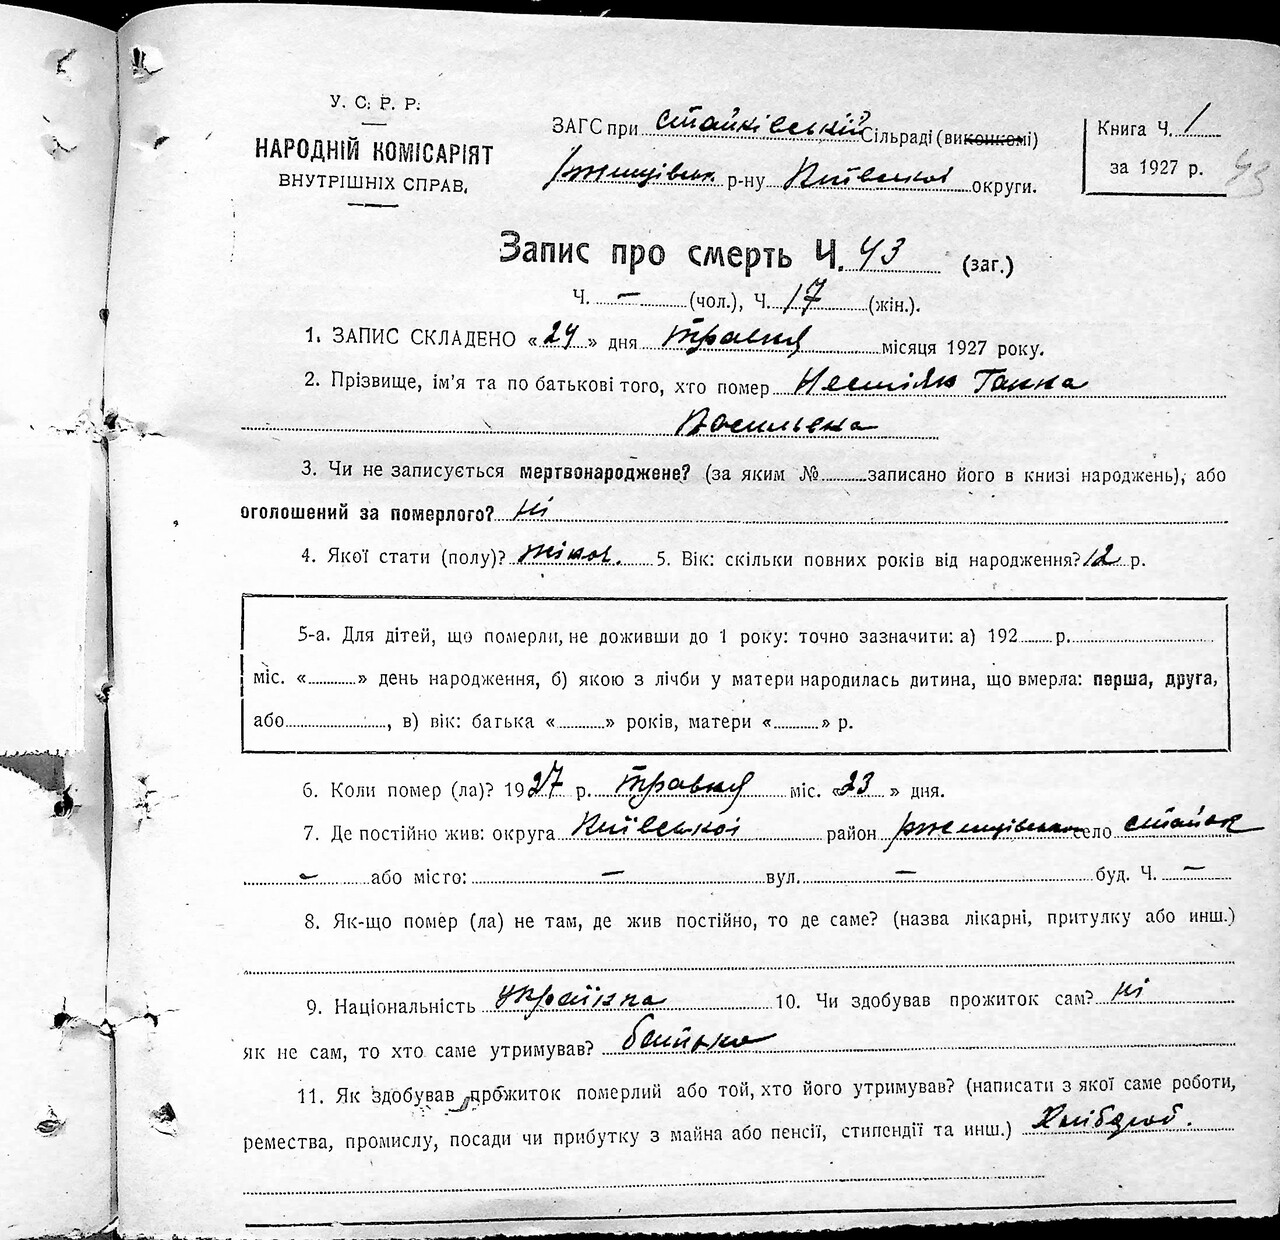 У. С. Р. Р.
НАРОДНІЙ КОМІСАРІЯТ
ВНУТРІШНІХ СПРАВ.
ЗАГС при стайківській Сільраді (виконкомі)
р-ну Київської округи.
Книга Ч. 1
за 1927 р.
43
Запис про смерть Ч. 43 (заг.)
Ч. – (чол.), Ч. 17 (жін.).
1. ЗАПИС СКЛАДЕНО «24» дня травня місяця 1927 року.
2. Прізвище, ім'я та по батькові того, хто помер Ганна
Васильевна
3. Чи не записується мертвонароджене? (за яким № записано його в книзі народжень), або
оголошений за померлого? ні
4. Якої стати (полу)? жіноч. 5. Вік: скільки повних років від народження? 12 р.
5-а. Для дітей, що померли, не доживши до 1 року: точно зазначити: а) 192 р.
міс. « » день народження, б) якою з лічби у матери народилась дитина, що вмерла: перша, друга,
або , в) вік: батька « » років, матери « » р.
6. Коли помер (ла)? 1927 р. травня міс. «23» дня.
7. Де постійно жив: округа Київської район село стайок
– або місто: – вул. – буд. Ч. –
8. Як-що помер (ла) не там, де жив постійно, то де саме? (назва лікарні, притулку або инш.)
9. Національність Українка 10. Чи здобував прожиток сам? ні
як не сам, то хто саме утримував? батько
11. Як здобував прожиток померлий або той, хто його утримував? (написати з якої саме роботи,
ремества, промислу, посади чи прибутку з майна або пенсії, стипендії та инш.) Хлібороб.